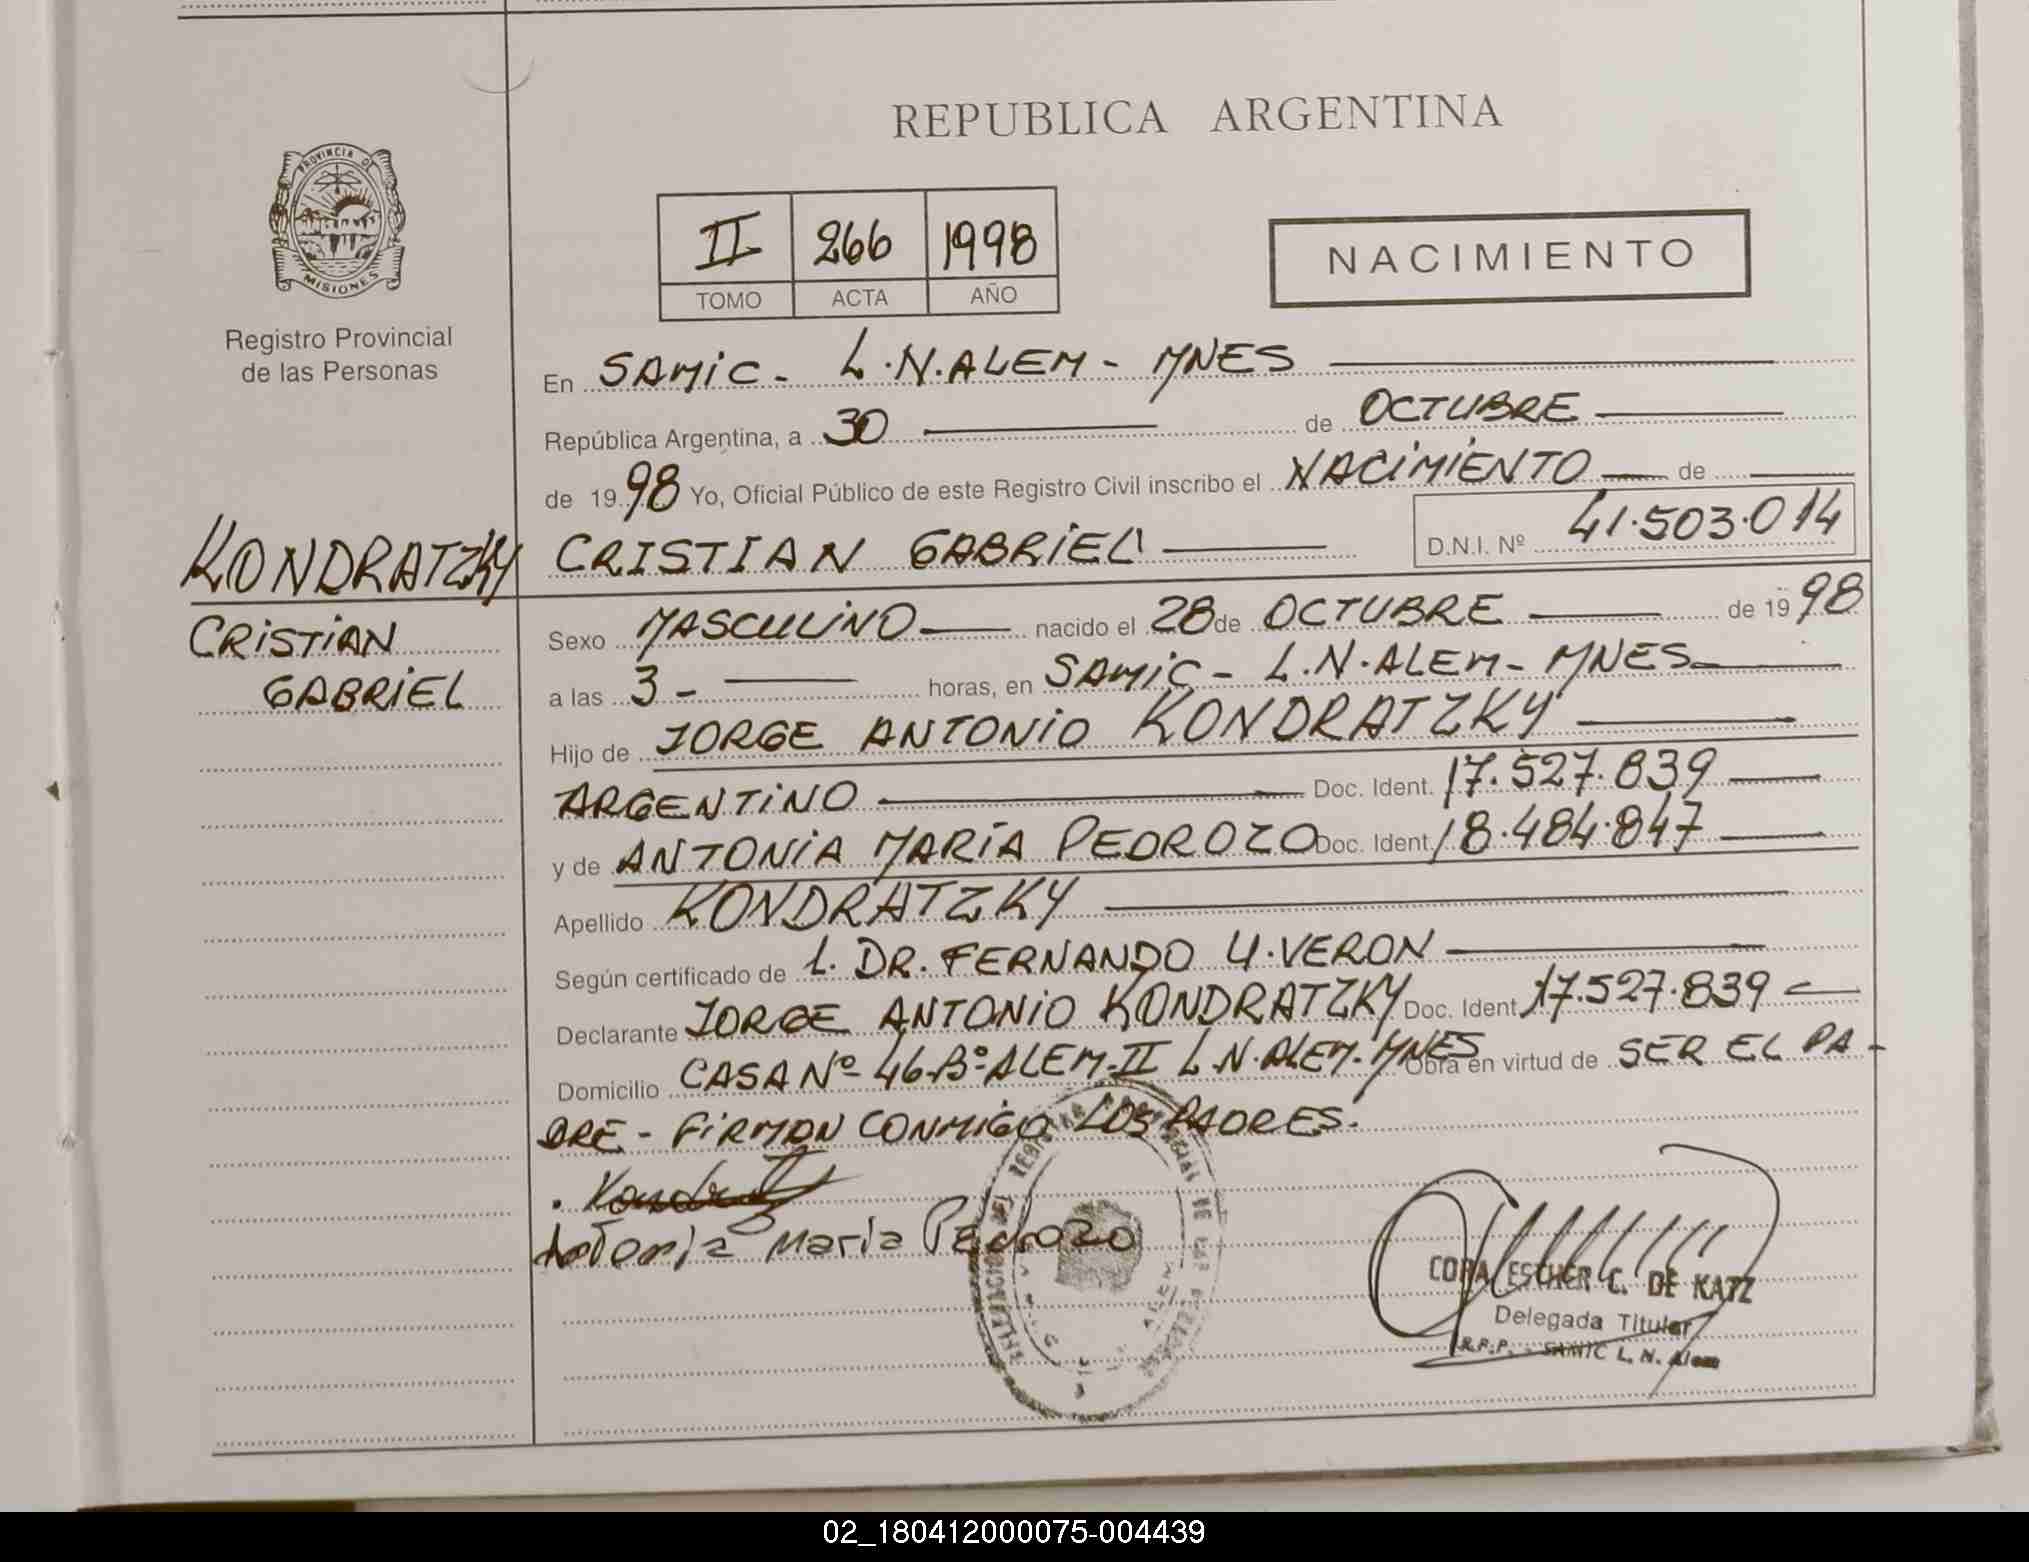 REPUBLICA ARGENTINA
PROVINCIA DE
MISIONES
Registro Provincial
de las Personas
II 266 1998
TOMO ACTA AÑO
NACIMIENTO
En SAMIC - L.N.ALEM - MNES
República Argentina, a 30 de OCTUBRE
de 1998 Yo, Oficial Público de este Registro Civil inscribo el NACIMIENTO de
CRISTIAN GABRIEL D.N.I. Nº 41.503.014
KONDRATZKY
CRISTIAN
GABRIEL
Sexo MASCULINO nacido el 28 de OCTUBRE de 1998
a las 3 - horas, en SAMIC - L.N.ALEM - MNES
Hijo de JORGE ANTONIO KONDRATZKY
ARGENTINO Doc. Ident. 17.527.839
y de ANTONIA MARÍA PEDROZO Doc. Ident. 18.484.847
Apellido KONDRATZKY
Según certificado de L. DR. FERNANDO U. VERON
Declarante JORGE ANTONIO KONDRATZKY Doc. Ident. 17.527.839
Domicilio CASA Nº 46-Bº ALEM-II L.N.ALEM-MNES Obra en virtud de SER EL PA-
DRE - FIRMAN CONMIGO LOS PADRES.
Antonia Maria Pedrozo
ESTHER C. DE KATZ
Delegada Titular
R.P.P. - SAMIC L. N. Alem
02_180412000075-004439